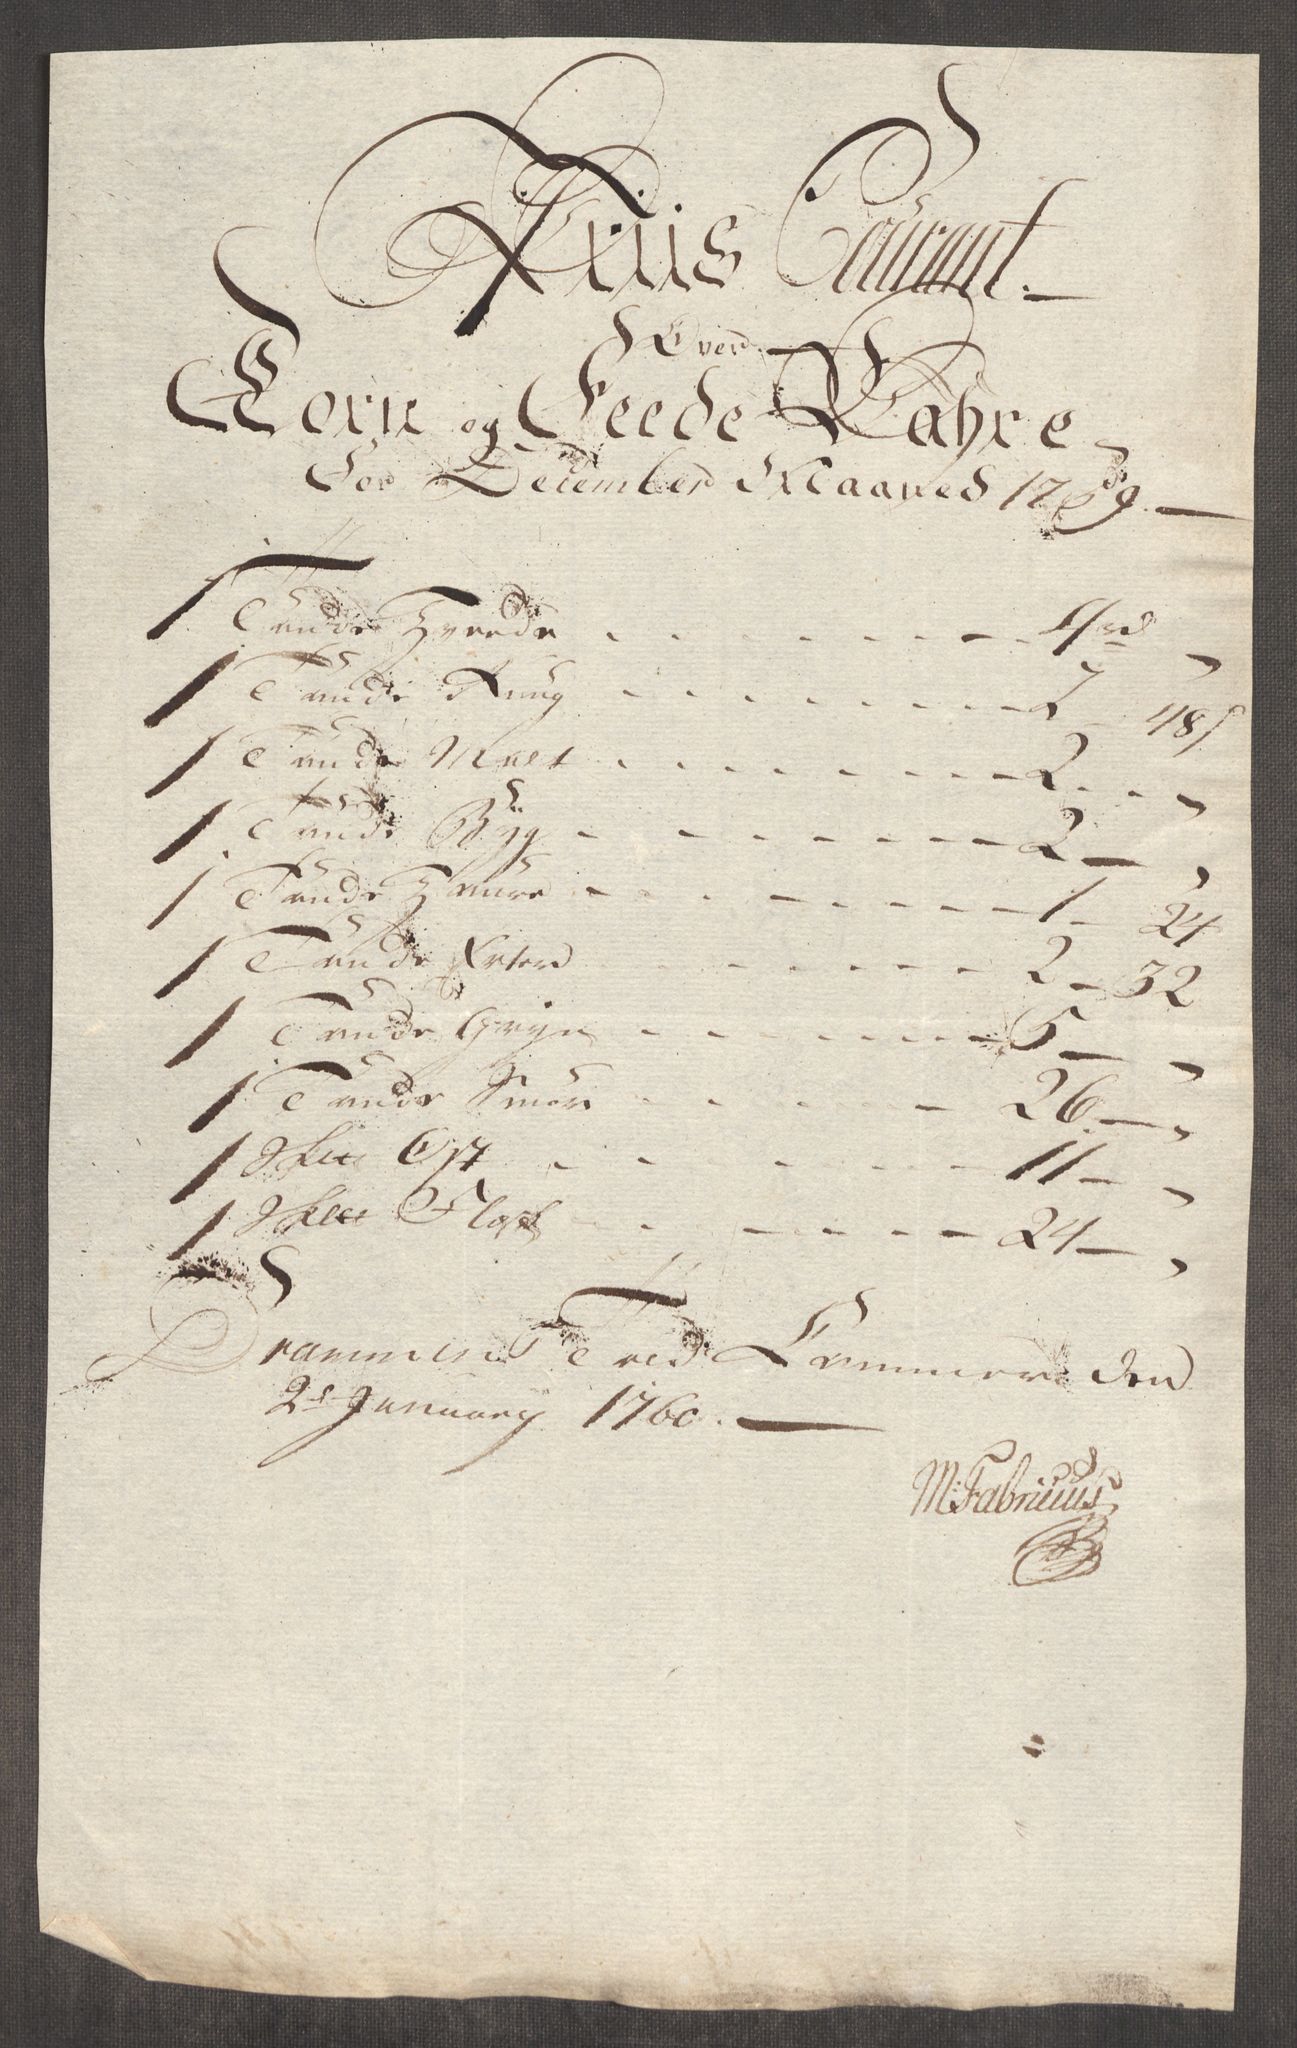 Priis Courant.
Over
Korn og Feede Vahre
For December Maaned 1759.
1 Tønde Hvede - - - 4 rd „
1 Tønde Rug - - - 2 - 48 s
1 Tønde Malt - - - 2 - „
1 Tønde Byg - - - 2 - „
1 Tønde Haure - - - 1 - 24
1 Tønde Erter - - - 2 - 32
1 Tønde Gryn - - - 5 - „
1 Tønde Smør - - - 26 - „
1 Sk℔ Ost - - - 11 - „
1 Sk℔ Flesk - - - 24 - „
Drammens Told Cammer den
2d January 1760.
M: Fabricius